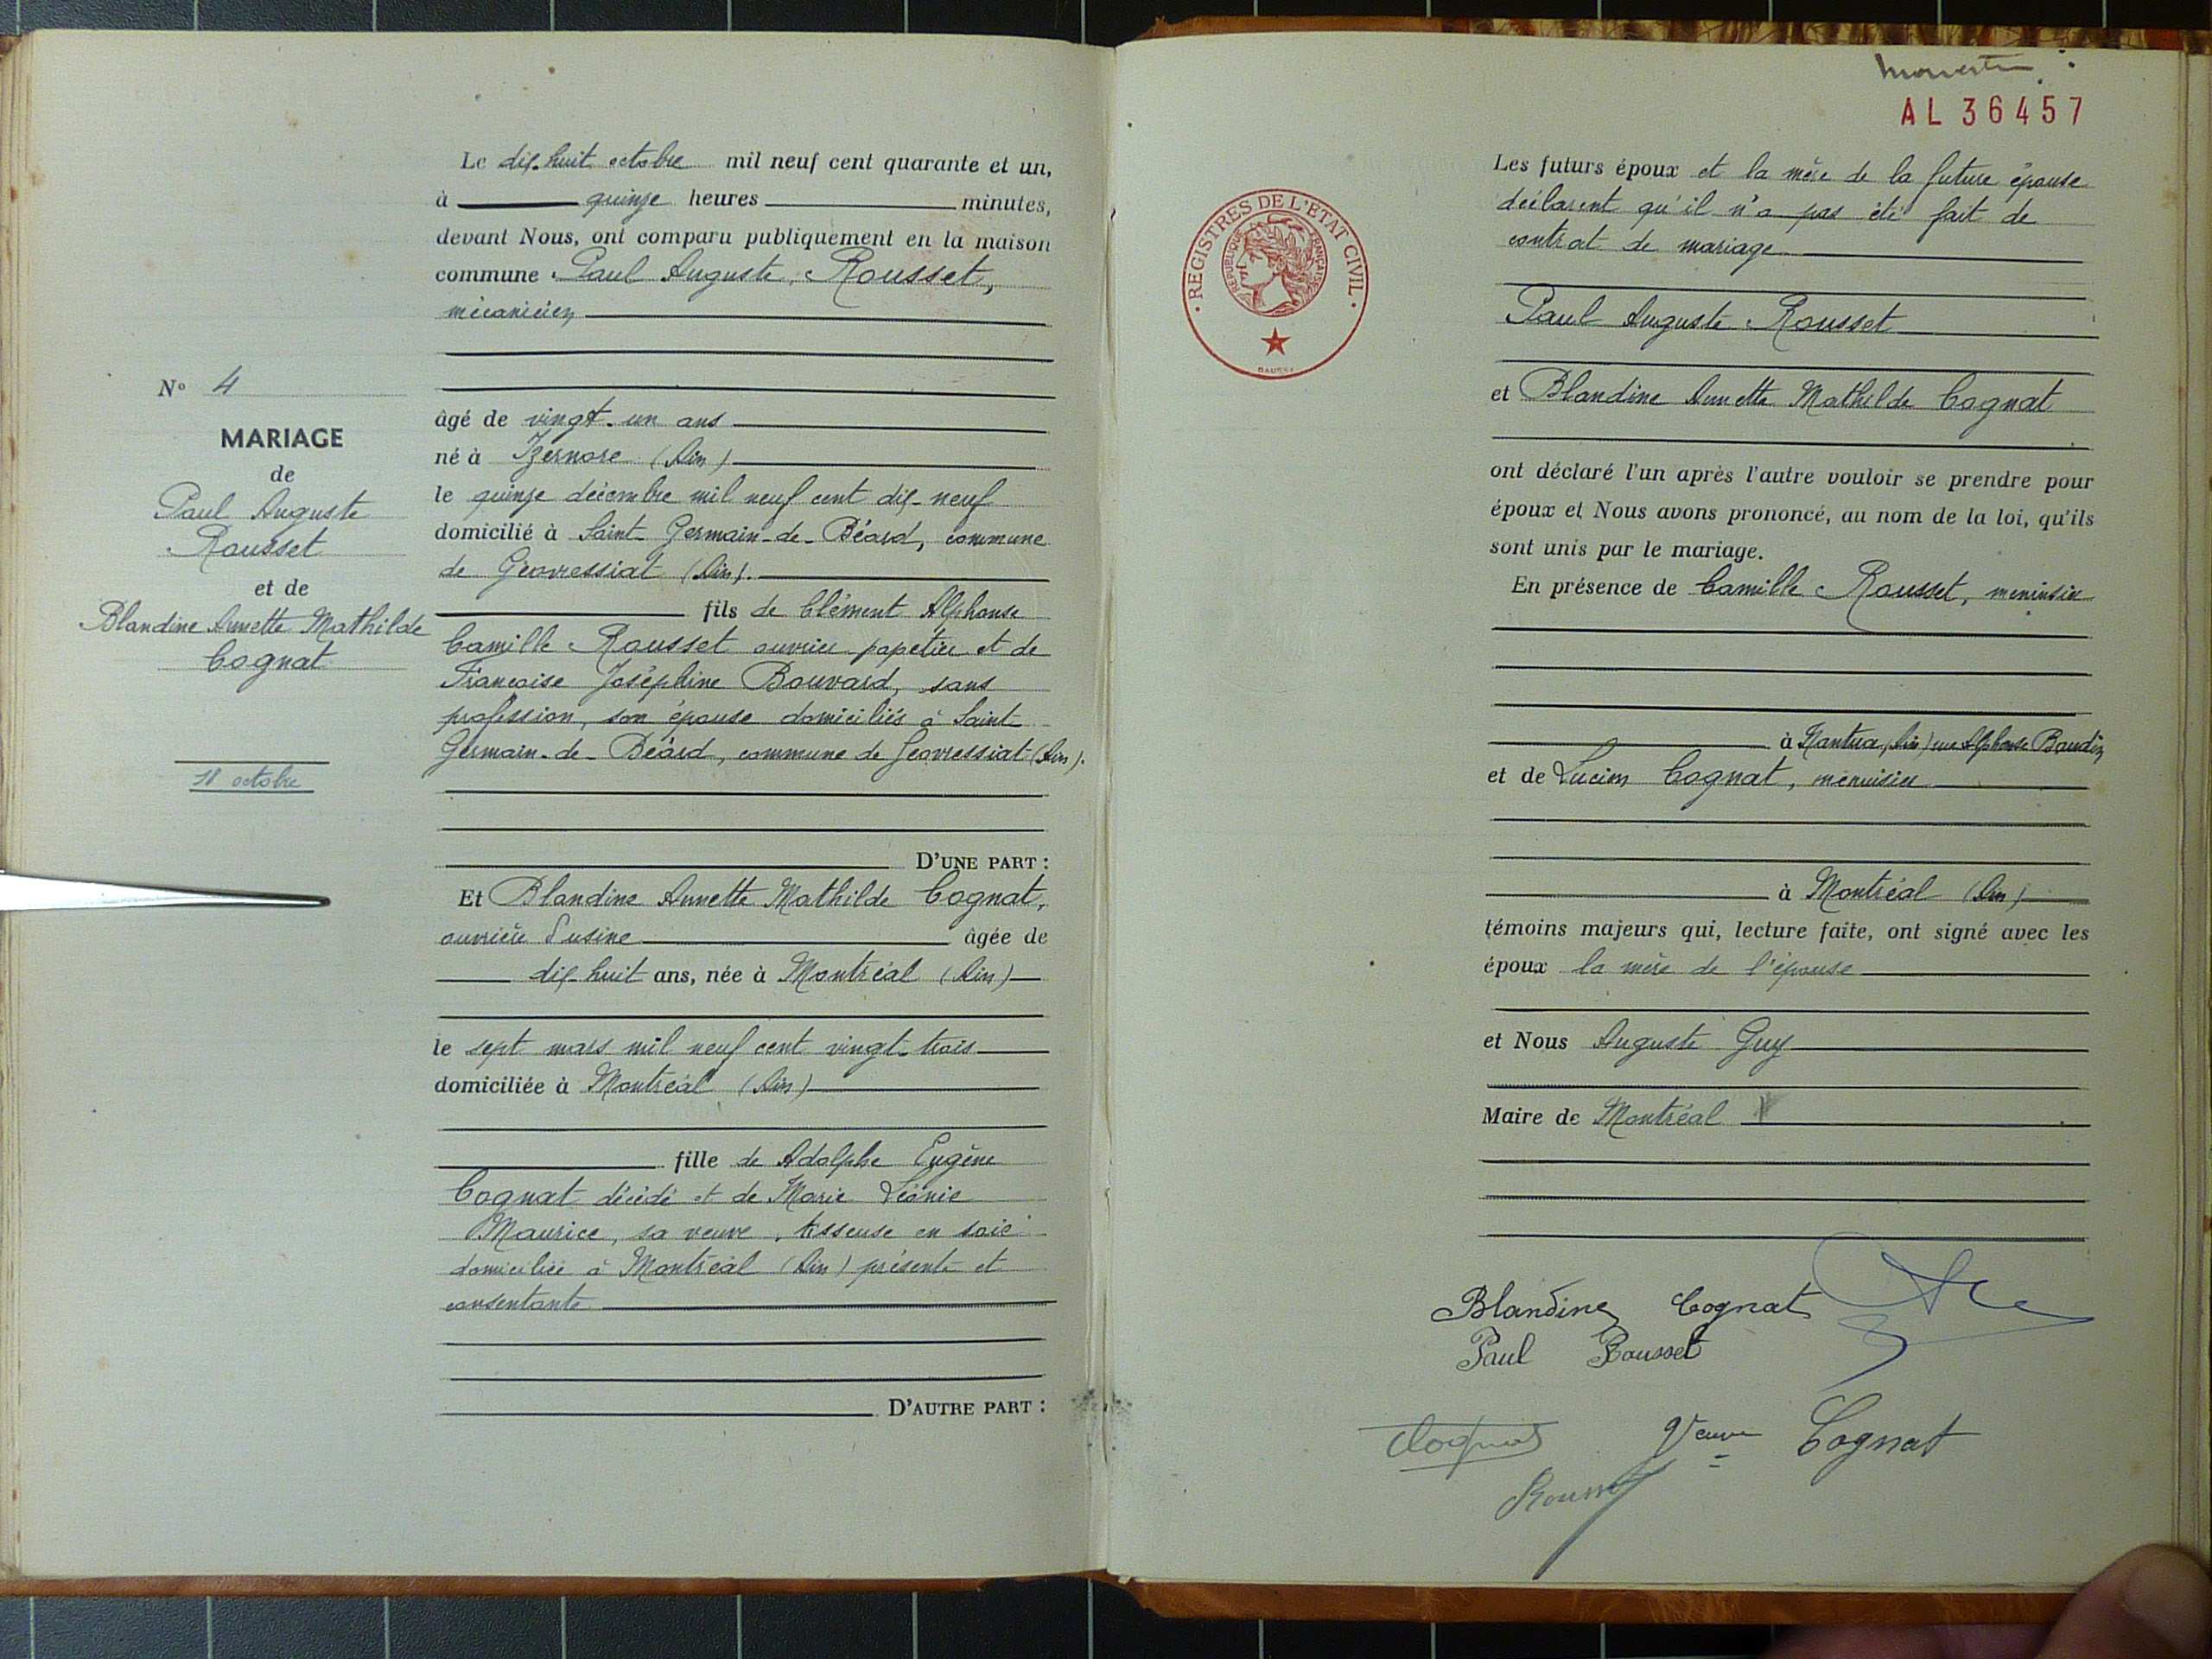 Le dix-huit octobre mil neuf cent quarante et un,
à quinze heures minutes,
devant Nous, ont comparu publiquement en la maison
commune Paul Auguste, Rousset,
mécanicien
âgé de vingt-un ans
né à Izernore (Ain)
le quinze décembre mil neuf cent dix-neuf
domicilié à Saint Germain-de-Béard, commune
de Géovressiat (Ain).
fils de Clément Alphonse
Camille Rousset ouvrier papetier et de
Françoise Joséphine Bouvard, sans
profession, son épouse domiciliés à Saint
Germain-de-Béard, commune de Géovressiat (Ain).
D'UNE PART :
Et Blandine Annette Mathilde Cognat,
ouvrière d'usine âgée de
dix-huit ans, née à Montréal (Ain)
le sept mars mil neuf cent vingt-trois
domiciliée à Montréal (Ain)
fille de Adolphe Eugène
Cognat décédé et de Marie Léonie
Maurice, sa veuve, tisseuse en soie
domiciliée à Montréal (Ain) présente et
consentante
D'AUTRE PART :
N° 4
MARIAGE
de
Paul Auguste
Rousset
et de
Blandine Annette Mathilde
Cognat
18 octobre
AL 36457
REGISTRES DE L'ÉTAT CIVIL
RÉPUBLIQUE FRANÇAISE
Les futurs époux et la mère de la future épouse
déclarent qu'il n'a pas été fait de
contrat de mariage
Paul Auguste Rousset
et Blandine Annette Mathilde Cognat
ont déclaré l'un après l'autre vouloir se prendre pour
époux et Nous avons prononcé, au nom de la loi, qu'ils
sont unis par le mariage.
En présence de Camille Rousset, menuisier
à Nantua, (Ain) rue Alphonse Baudin
et de Lucien Cognat, menuisier
à Montréal (Ain)
témoins majeurs qui, lecture faite, ont signé avec les
époux la mère de l'épouse
et Nous Auguste Guy
Maire de Montréal
Blandine Cognat
Paul Rousset
Cognat
Veuve Cognat
Rousset